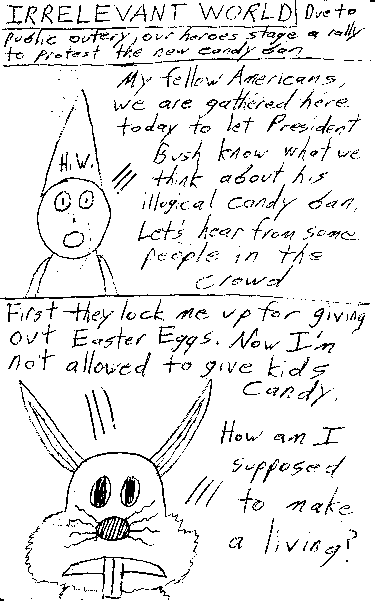 IRRELEVANT WORLD Due to
public outcry, our heroes stage a rally
to protest the new candy ban
My fellow Americans,
we are gathered here
today to let President
Bush know what we
think about his
illogical candy ban.
Let's hear from some
people in the
crowd
H.W.
First they lock me up for giving
out Easter Eggs. Now I'm
not allowed to give kids
Candy.
How am I
supposed
to make
a living?